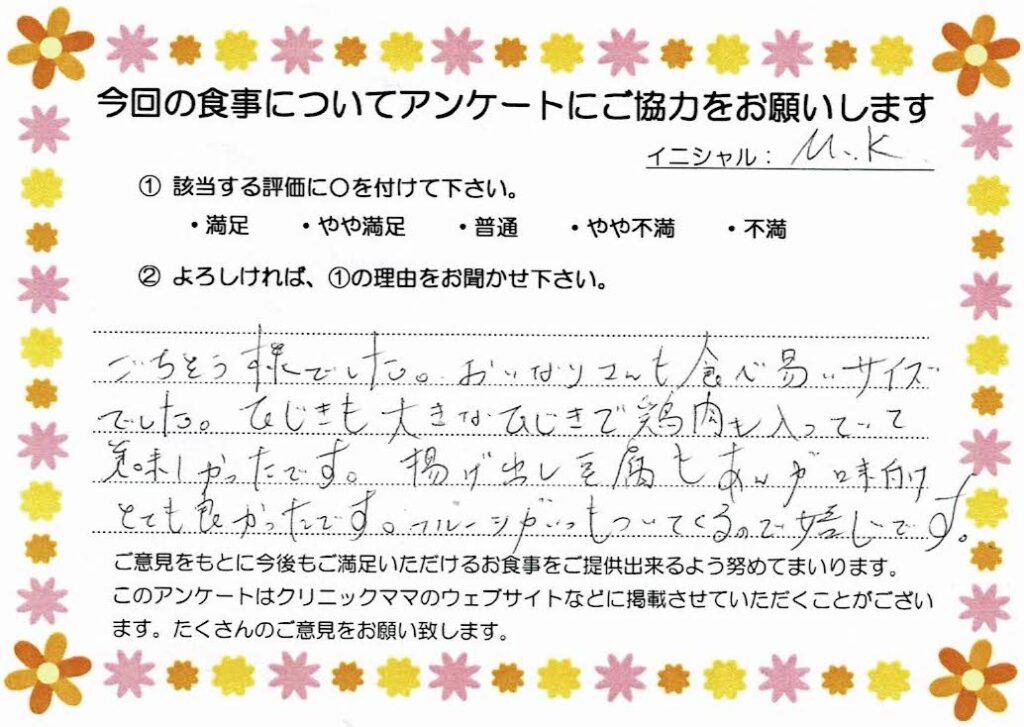 今回の食事についてアンケートにご協力をお願いします
イニシャル： M.K
① 該当する評価に〇を付けて下さい。
・満足 ・やや満足 ・普通 ・やや不満 ・不満
② よろしければ、①の理由をお聞かせ下さい。
ごちそう様でした。おいなりさんも食べ易いサイズ
でした。ひじきも大きなひじきで鶏肉も入ってて
美味しかったです。揚げ出し豆腐もあんが味付け
とても良かったです。フルーツがいつもついてくるので嬉しいです。
ご意見をもとに今後もご満足いただけるお食事をご提供出来るよう努めてまいります。
このアンケートはクリニックママのウェブサイトなどに掲載させていただくことがござい
ます。たくさんのご意見をお願い致します。